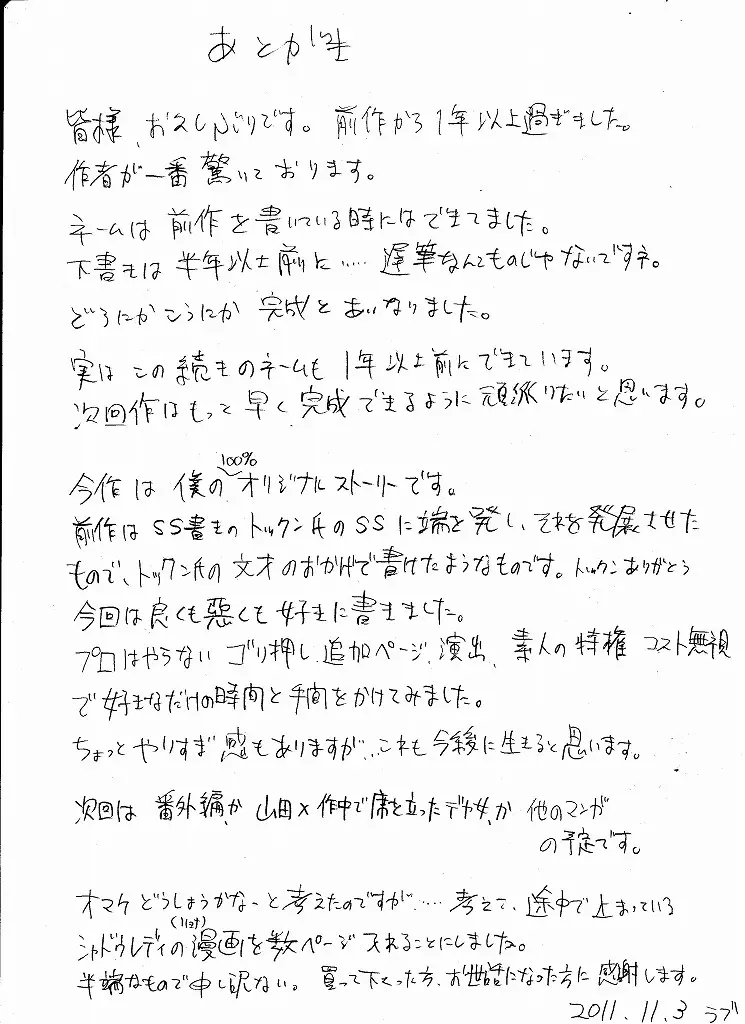 あとがき
皆様、お久しぶりです。前作から1年以上過ぎました。
作者が一番驚いております。
ネームは前作を書いている時にはできてました。
下書きは半年以上前に‥‥ 遅筆なんてものじゃないですネ。
どうにかこうにか完成とあいなりました。
実はこの続きのネームも1年以上前にできています。
次回作はもっと早く完成できるように頑張りたいと思います。
今作は僕の100%オリジナルストーリーです。
前作はSS書きのトックン氏のSSに端を発し、それを発展させた
もので、トックン氏の文才のおかげで書けたようなものです。トックンありがとう
今回は良くも悪くも好きに書きました。
プロはやらないゴリ押し、追加ページ、演出、素人の特権 コスト無視
で好きなだけの時間と手間をかけてみました。
ちょっとやりすぎ感もありますが‥これも今後に生きると思います。
次回は 番外編か 山田×作中で席を立ったデカ女、か 他のマンガ
の予定です。
オマケどうしようかなーと考えたのですが‥‥ 考えて、途中で止まっている
シャドウレディの漫画を数ページ入れることにしました。
半端なもので申し訳ない。買って下さった方、お世話になった方に感謝します。
2011.11.3 ラブ